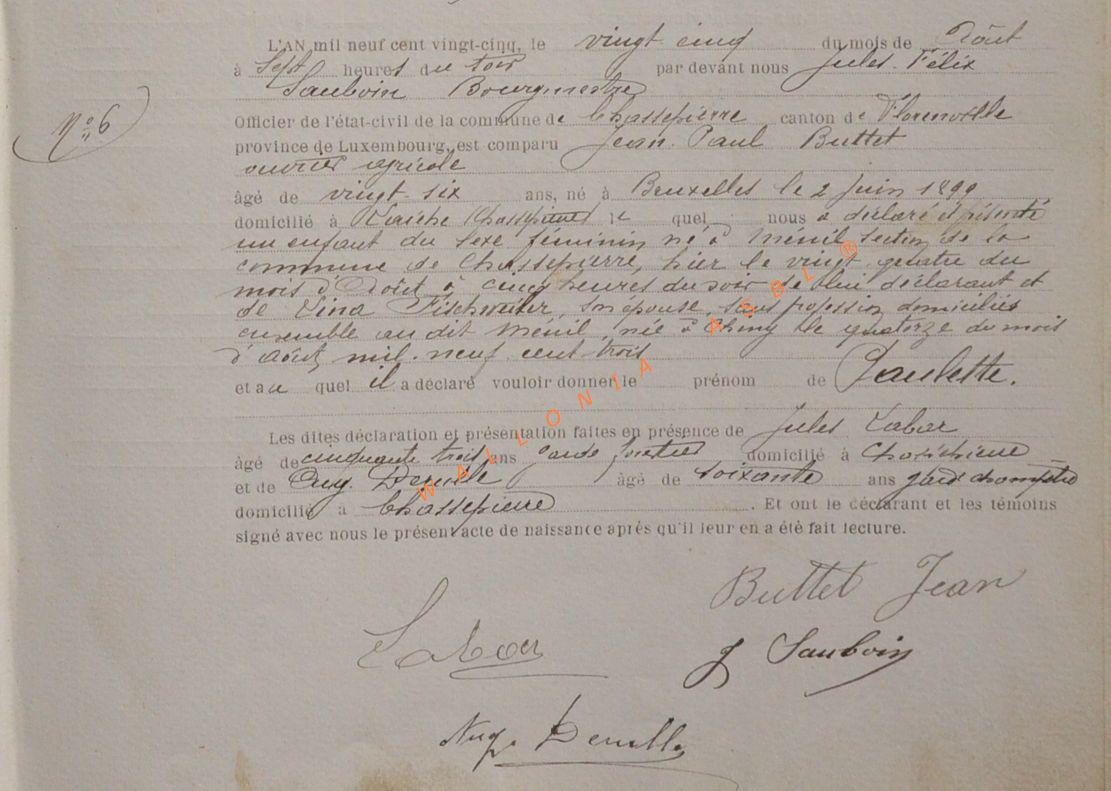 L'AN mil neuf cent vingt-cinq, le vingt cinq du mois de Août
à Sept heures du soir par devant nous Jules Félix
Sauboin Bourgmestre
Officier de l'état-civil de la commune de Chassepierre canton de Florenville
N° 6
province de Luxembourg, est comparu Jean Paul Buttet
ouvrier agricole
âgé de vingt six ans, né à Bruxelles le 2 Juin 1899
domicilié à Chassepierre le quel nous a déclaré et présenté
un enfant du sexe féminin né à Ménil section de la
commune de Chassepierre, hier le vingt quatre du
mois d'Août à cinq heures du soir de lui déclarant et
de son épouse, sans profession domiciliés
ensemble au dit Ménil, née à Chiny le quatorze du mois
d'août mil neuf cent trois
et au quel il a déclaré vouloir donner le prénom de Paulette.
Les dites déclaration et présentation faites en présence de Jules Labar
âgé de cinquante trois ans garde forestier domicilié à Chassepierre
et de Aug. âgé de soixante ans garde champêtre
domicilié à Chassepierre. Et ont le déclarant et les témoins
signé avec nous le présent acte de naissance après qu'il leur en a été fait lecture.
WALLONIA ASBL ®
Buttet Jean
Labar
J Sauboin
Aug.